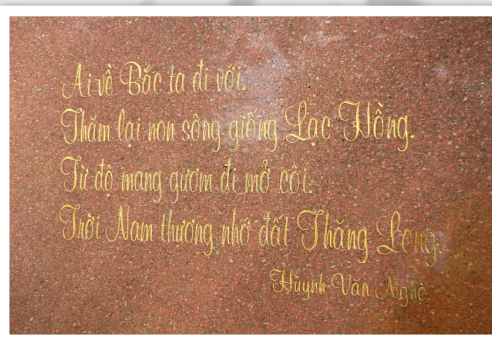 Ai về Bắc ta đi với.
Thăm lại non sông giống Lạc Hồng.
Từ độ mang gươm đi mở cõi.
Trời Nam thương nhớ đất Thăng Long.
Huỳnh Văn Nghệ